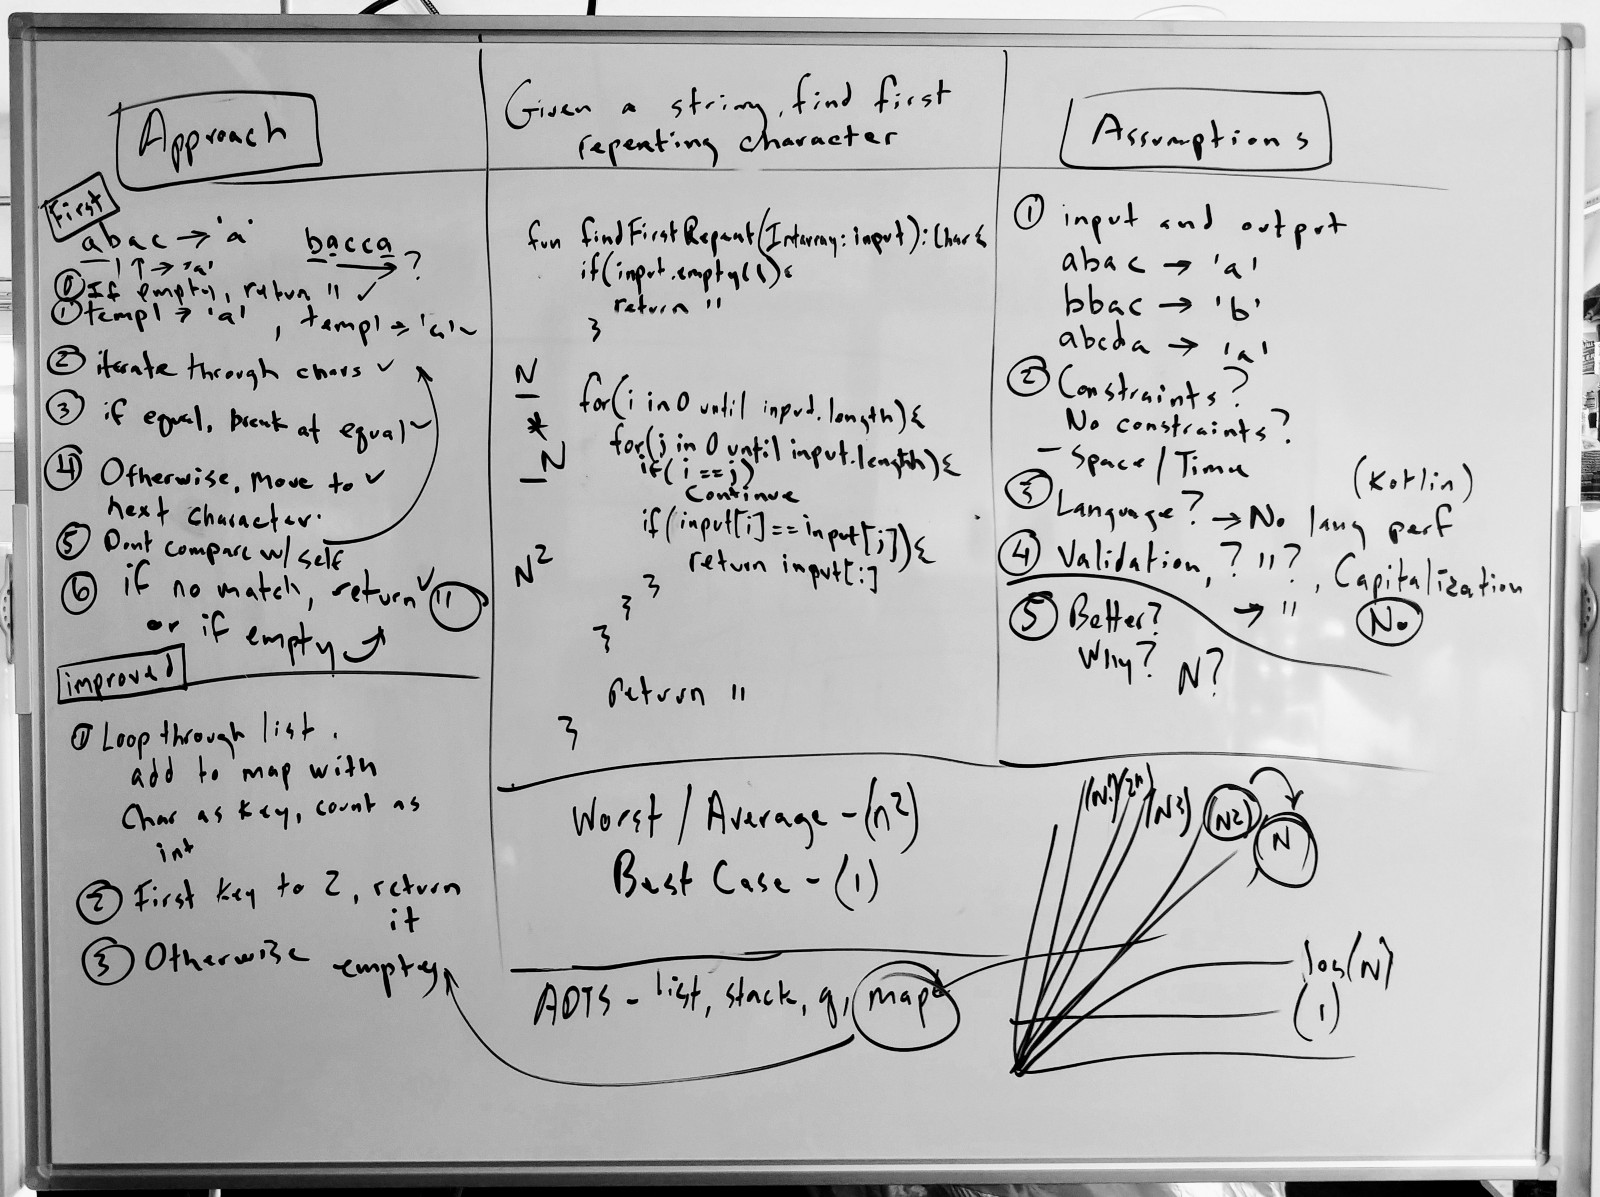 Approach
First
abac → 'a' bacca
→ 'a' ?
⓪ If empty, return '' ✓
① temp1 → 'a', temp1 → 'a' ✓
② iterate through chars ✓
③ if equal, break at equal ✓
④ Otherwise, move to ✓
next character.
⑤ Dont compare w/ self
⑥ if no match, return ✓ ''
or if empty
improved
① Loop through list.
add to map with
char as key, count as
int
② First key to 2, return
it
③ Otherwise empty
Given a string, find first
repeating character
fun findFirstRepeat(Intarray: input): Char{
if(input.empty()){
return ''
}
N
*
N
N²
for(i in 0 until input.length){
for(j in 0 until input.length){
if(i == j)
continue
if(input[i] == input[j]){
return input[i]
}
}
}
return ''
}
Worst / Average - (n²)
Best Case - (1)
ADTS - list, stack, q, map
Assumptions
① input and output
abac → 'a'
bbac → 'b'
abcda → 'a'
② Constraints?
No constraints?
- Space / Time
③ Language? → No lang perf (Kotlin)
④ Validation, ? ''?, Capitalization
→ '' No
⑤ Better?
Why? N?
(N!) (2ⁿ) (N³) (N²) N
log(N)
(1)